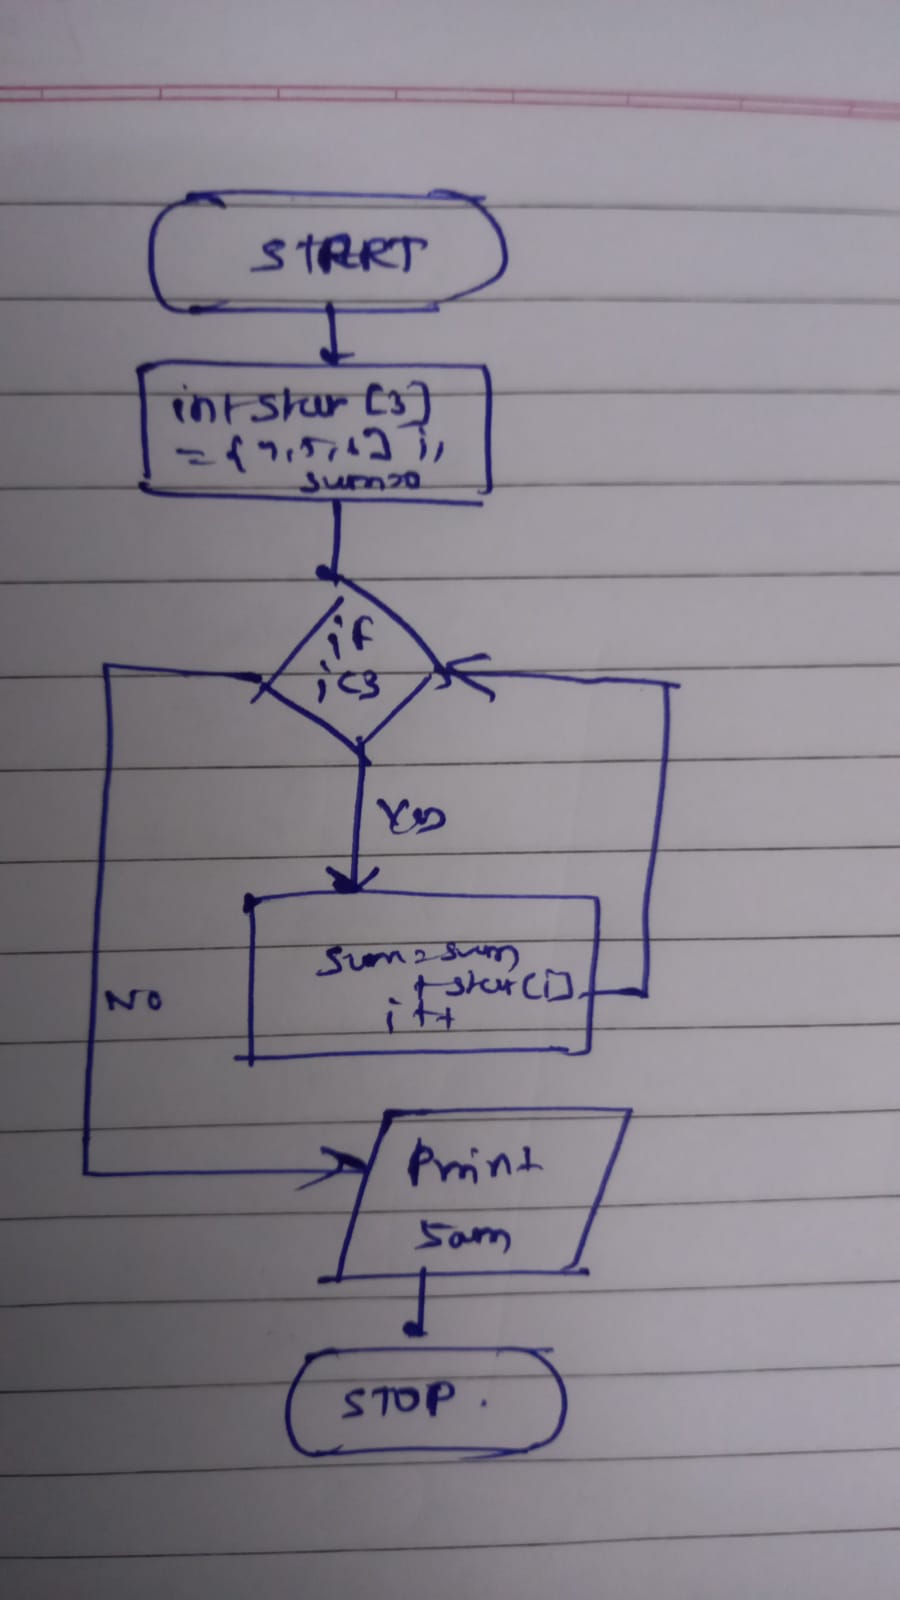 START
int star [3]
= {7,5,6] i,
sum=0
if
i<3
Yes
sum=sum
+ star[i]
i++
No
Print
sam
STOP.